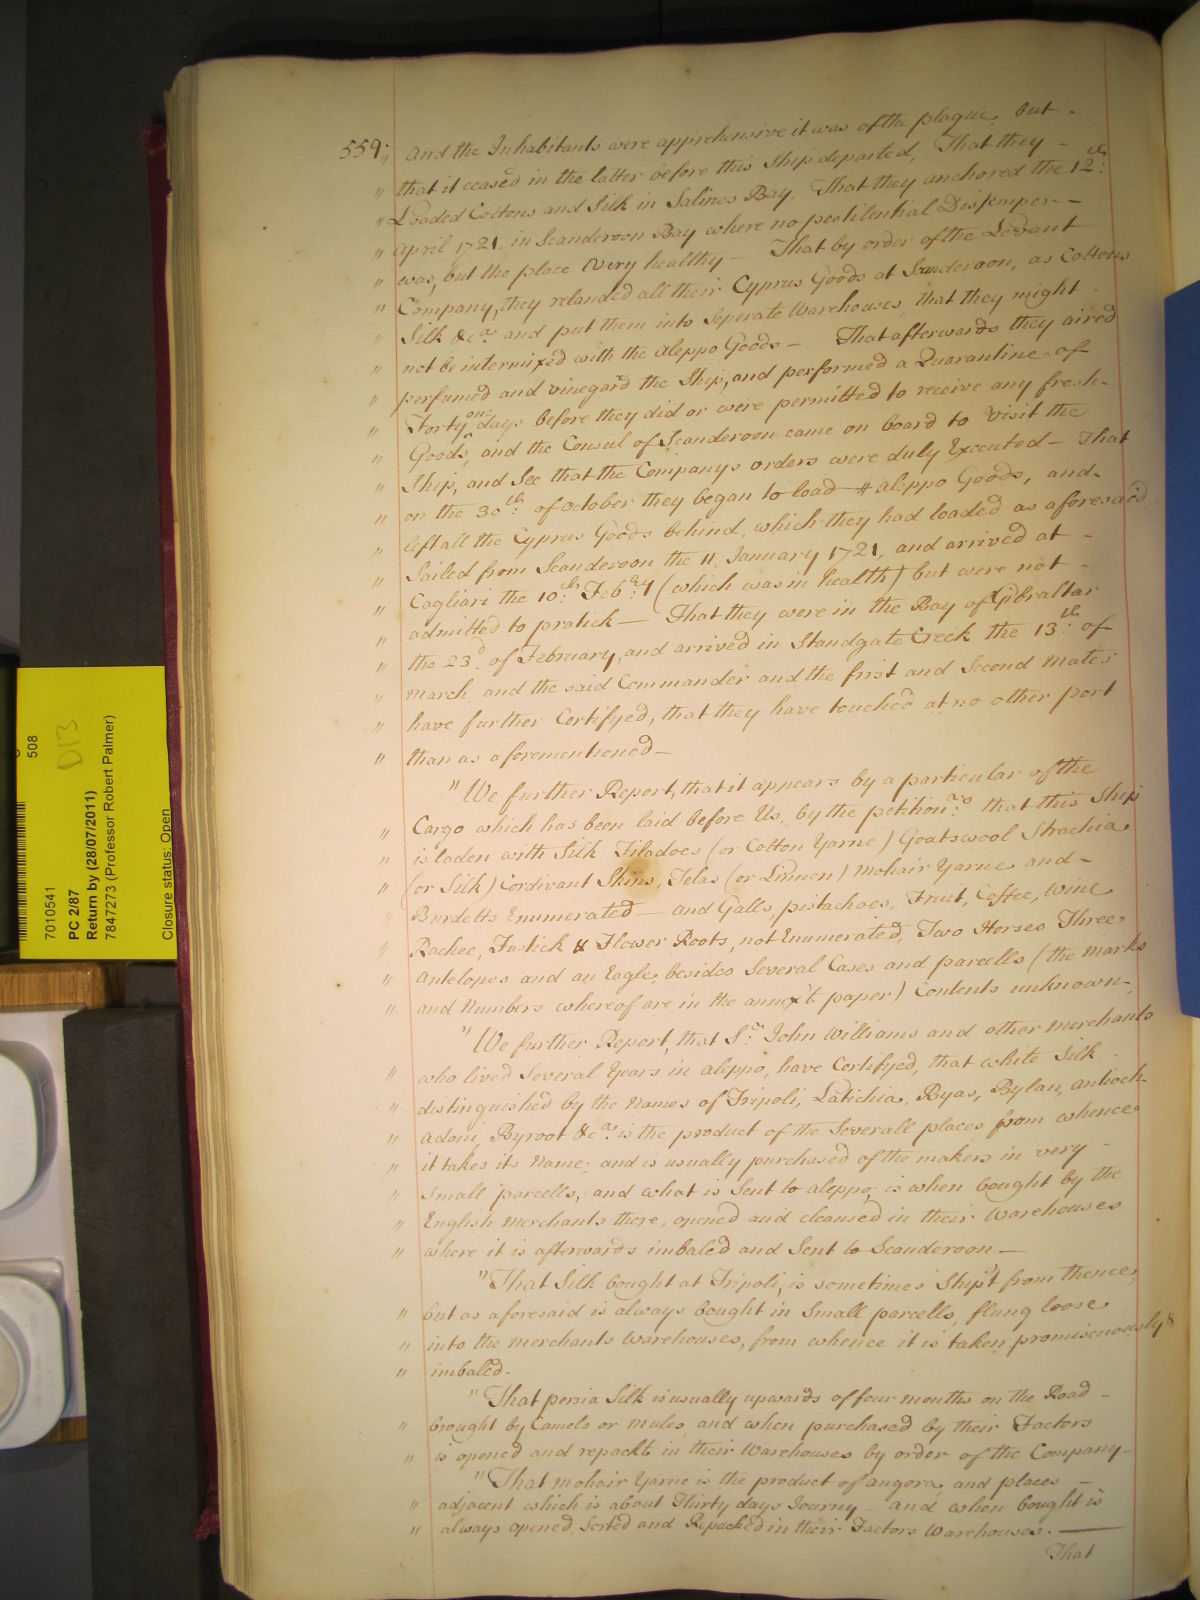 559. " And the Inhabitants were apprehensive it was of the plague, but -
" that it ceased in the latter before this Ship departed, That they -
" Loaded Cottons and Silk in Salines Bay. That they anchored the 12th.
" April 1721. in Scanderoon Bay where no pestilential Distemper -
" was, but the place very healthy - That by order of the Levant
" Company, they relanded all their Cyprus Goods at Scanderoon, as Cottons
" Silk &ca. and put them into Seperate Warehouses, that they might -
" not be intermixed with the Aleppo Goods - That afterwards they aired
" perfumed and vinegar'd the Ship, and performed a Quarantine of
" Forty one days before they did or were permitted to receive any fresh-
" Goods, and the Consul of Scanderoon came on board to Visit the
" Ship, and See that the Companys orders were duly Executed - That
" on the 30th. of October they began to load Aleppo Goods, and-
" left all the Cyprus Goods behind, which they had loaded as aforesaid
" Sailed from Scanderoon the 11 January 1721, and arrived at -
" Cagliari the 10th. Febry (which was in health) but were not -
" admitted to pratick - That they were in the Bay of Gibraltar
" the 23d. of February, and arrived in Standgate Creek the 13th. of
" March and the said Commander and the first and Second Mates
" have further Certifyed, that they have touched at no other port
" than as aforementioned -
" We further Report, that it appears by a particular of the
" Cargo which has been laid before Us, by the petitionrs. that this Ship
" is laden with Silk Filadoes (or Cotton Yarne) Goatswool Strachia
" (or Silk) Cordivant Skins, Telas (or Linnen) Mohair Yarne and -
" Burdetts Enumerated - and Galls, pistachoes, Fruit, Coffee, Wine
" Rachee, Fustick & Flower Roots, not Enumerated, Two Horses Three
" Antelopes and an Eagle, besides Several Cases and parcells (the Marks
" and Numbers whereof are in the annex't paper) Contents unknown-
" We further Report, that Sr. John Williams and other Merchants
" who lived Several Years in Aleppo, have Certifyed, that white Silk -
" distinguished by the Names of Tripoli, Latichia, Byas, Bylan, Antioch
" Adoni, Byroot &ca. is the product of the Severall places from whence
" it takes its Name; and is usually purchased of the makers in very -
" Small parcells, and what is Sent to Aleppo, is when bought by the
" English Merchants there, opened and cleansed in their Warehouses
" where it is afterwards imbaled and Sent to Scanderoon -
" That Silk bought at Tripoli, is sometimes Ship't from thence,
" but as aforesaid is always bought in Small parcells, flung loose
" into the Merchants Warehouses, from whence it is taken promiscuously &
" imbaled.
" That persia Silk is usually upwards of four months on the Road -
" brought by Camels or mules, and when purchased by their Factors
" is opened and repackt in their Warehouses by order of the Company -
" That Mohair Yarne is the product of Angora, and places -
" adjacent which is about Thirty days Journy - and when bought is
" always opened, Sorted and Repacked in their Factors Warehouses. -
That
508
D13
7010541
PC 2/87
Return by (28/07/2011)
7847273 (Professor Robert Palmer)
Closure status: Open